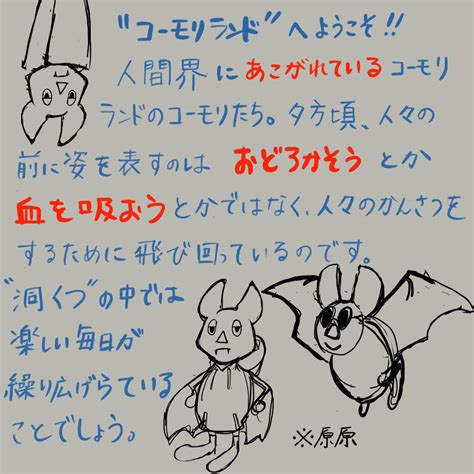 "コーモリランド"へようこそ!!
人間界にあこがれているコーモリ
ランドのコーモリたち。夕方頃、人々の
前に姿を表すのは おどろかそう とか
血を吸おうとかではなく、人々のかんさつを
するために飛び回っているのです。
"洞くつ"の中では
楽しい毎日が
繰り広げらている
ことでしょう。
※原原